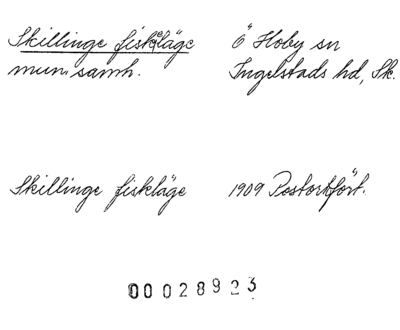 Skillinge fiskeläge
mun. samh.
Ö Hoby sn
Ingelstads hd, Sk.
Skillinge fiskläge
1909 Postortfört.
00028923